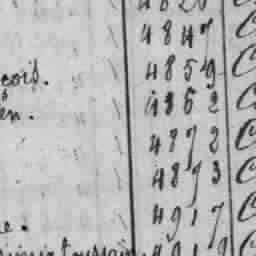 4847 C
cois. 4859 C
en. 4862 C
4872 C
4873 C
e. 4917 C